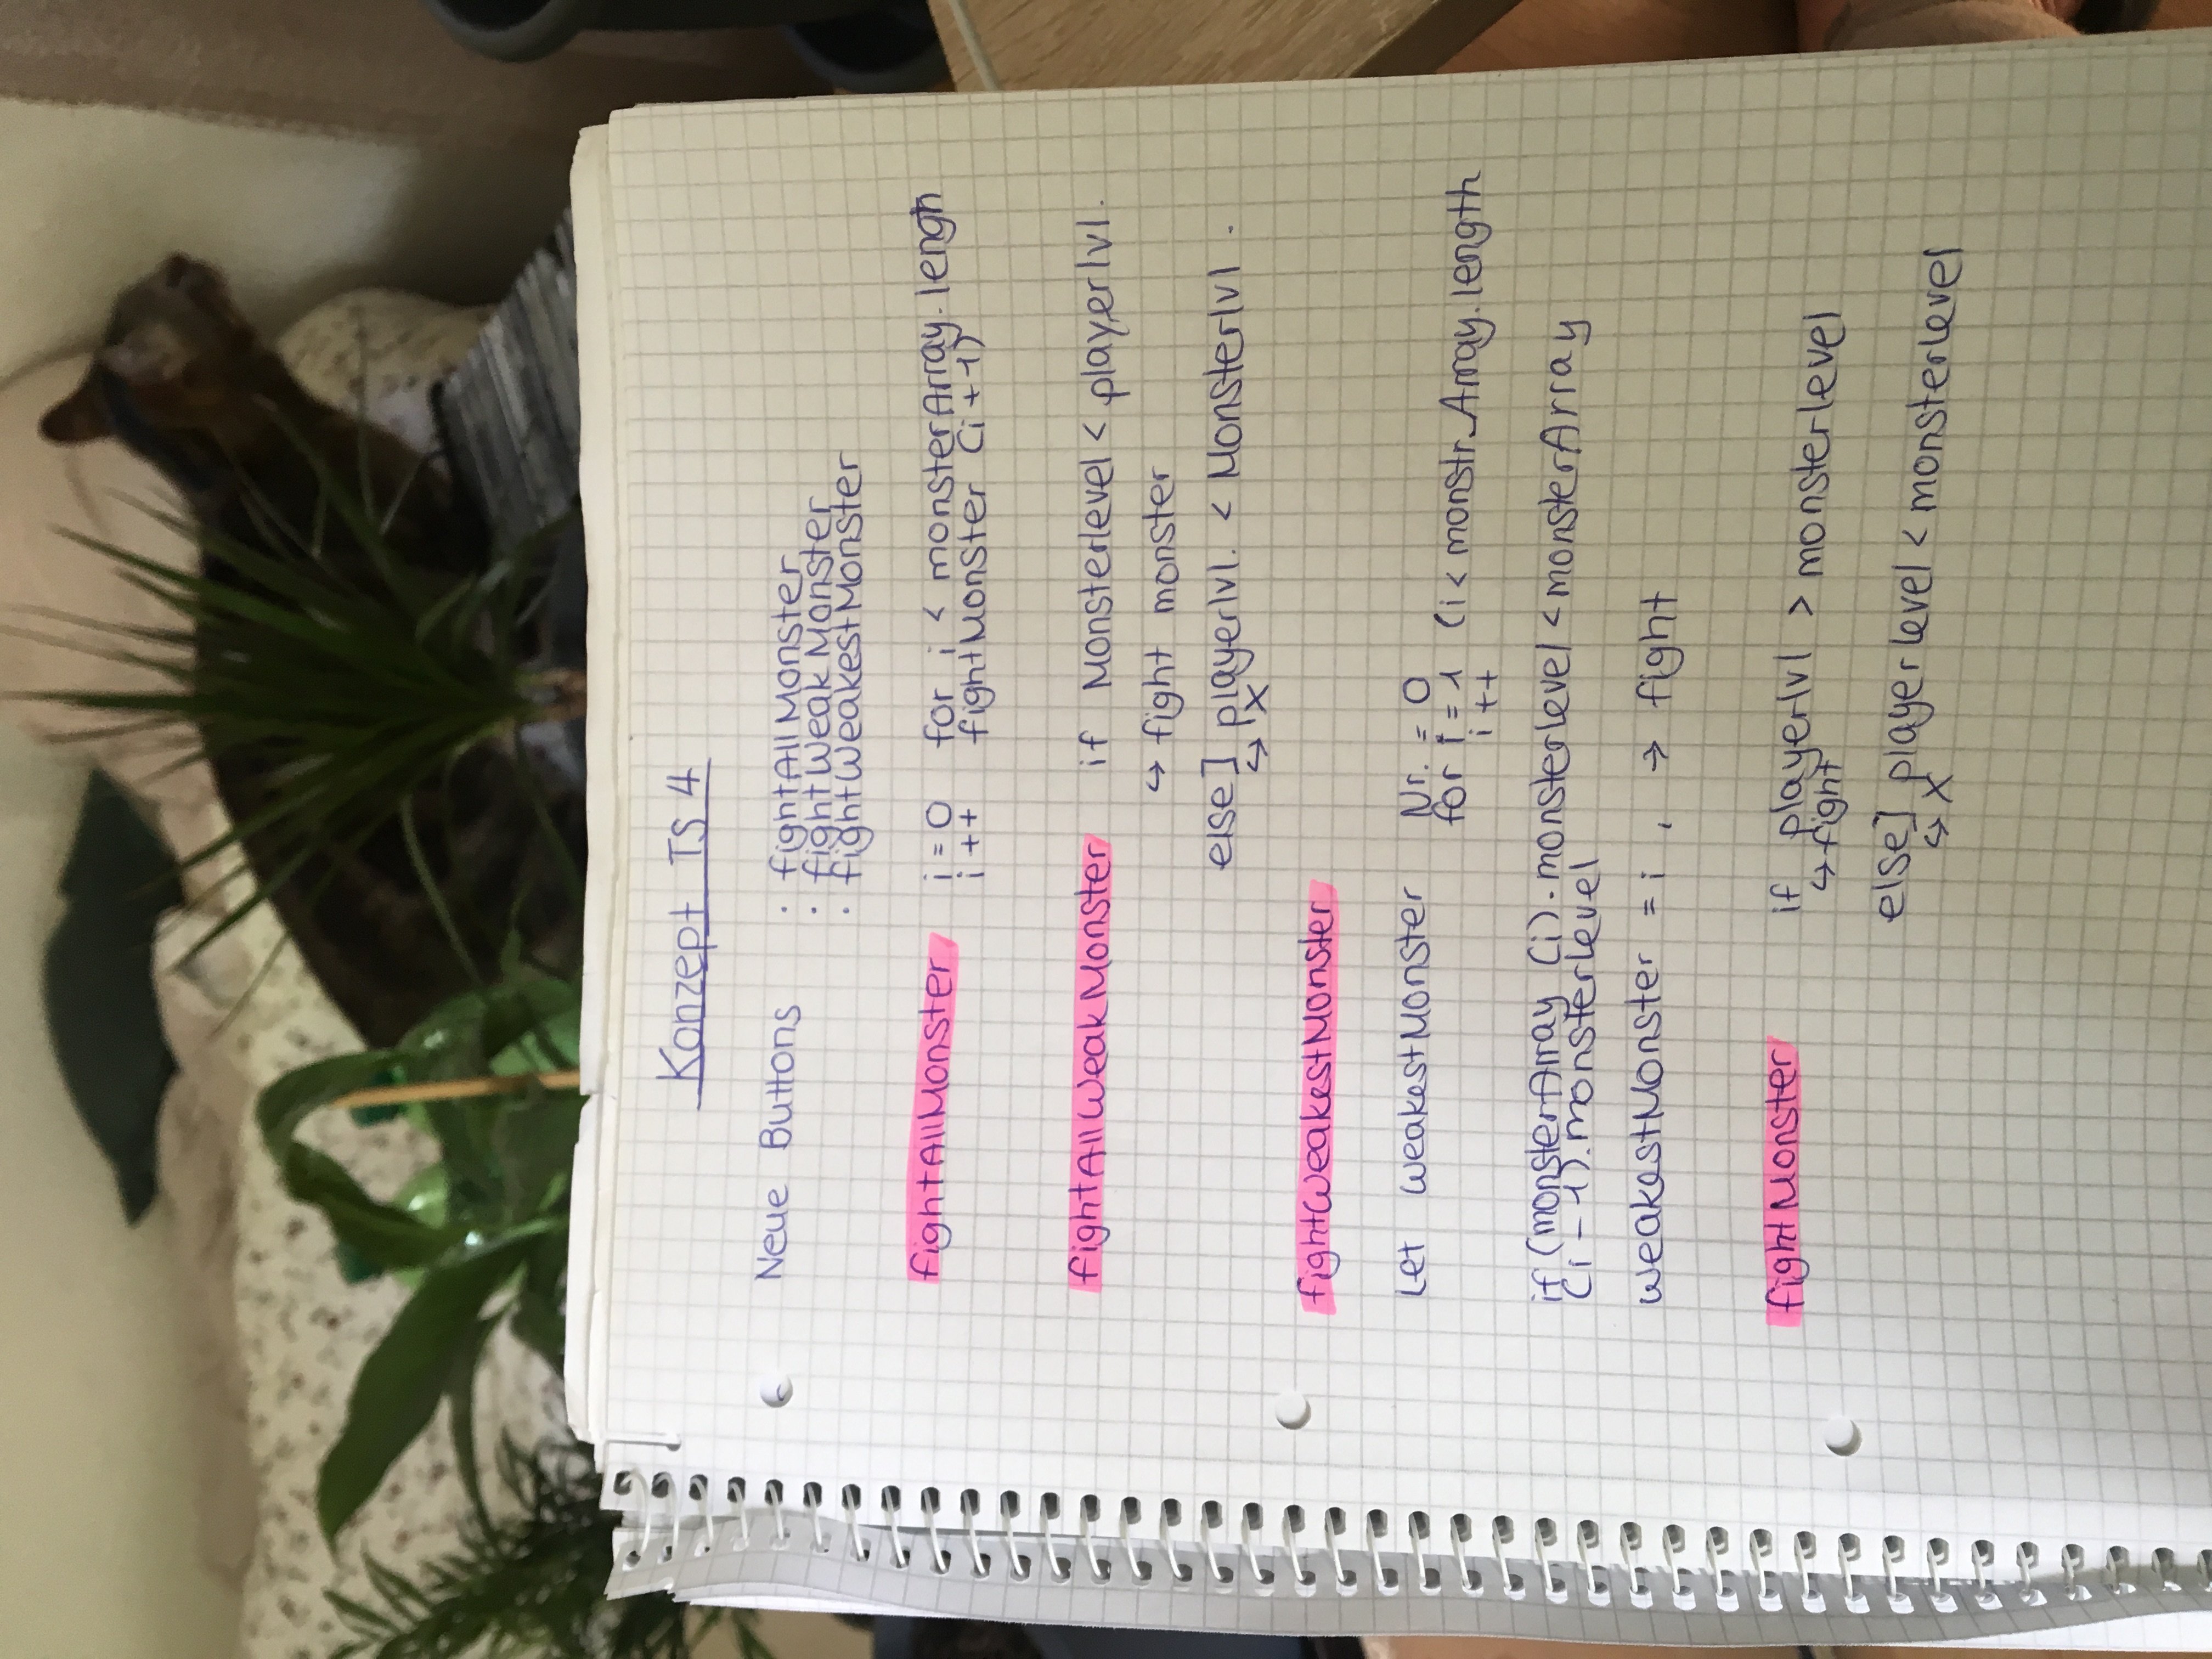 Konzept TS 4
Neue Buttons · fightAllMonster
· fightWeakMonster
· fightWeakestMonster
fightAllMonster i = 0 for i < monsterArray.lengh
i ++ fightMonster (i + 1)
fightAllWeakMonster if Monsterlevel < playerlvl.
↪ fight monster
else] playerlvl. < Monsterlvl .
↪ X
fightWeakestMonster
Let weakestMonster Nr. = 0
for i = 1 (i < monstr_Array.length
i ++
if (monsterArray (i).monsterlevel < monsterArray
(i - 1).monsterlevel
weakestMonster = i , → fight
fightMonster if playerlvl > monsterlevel
↪ fight
else] playerlevel < monsterlevel
↪ X